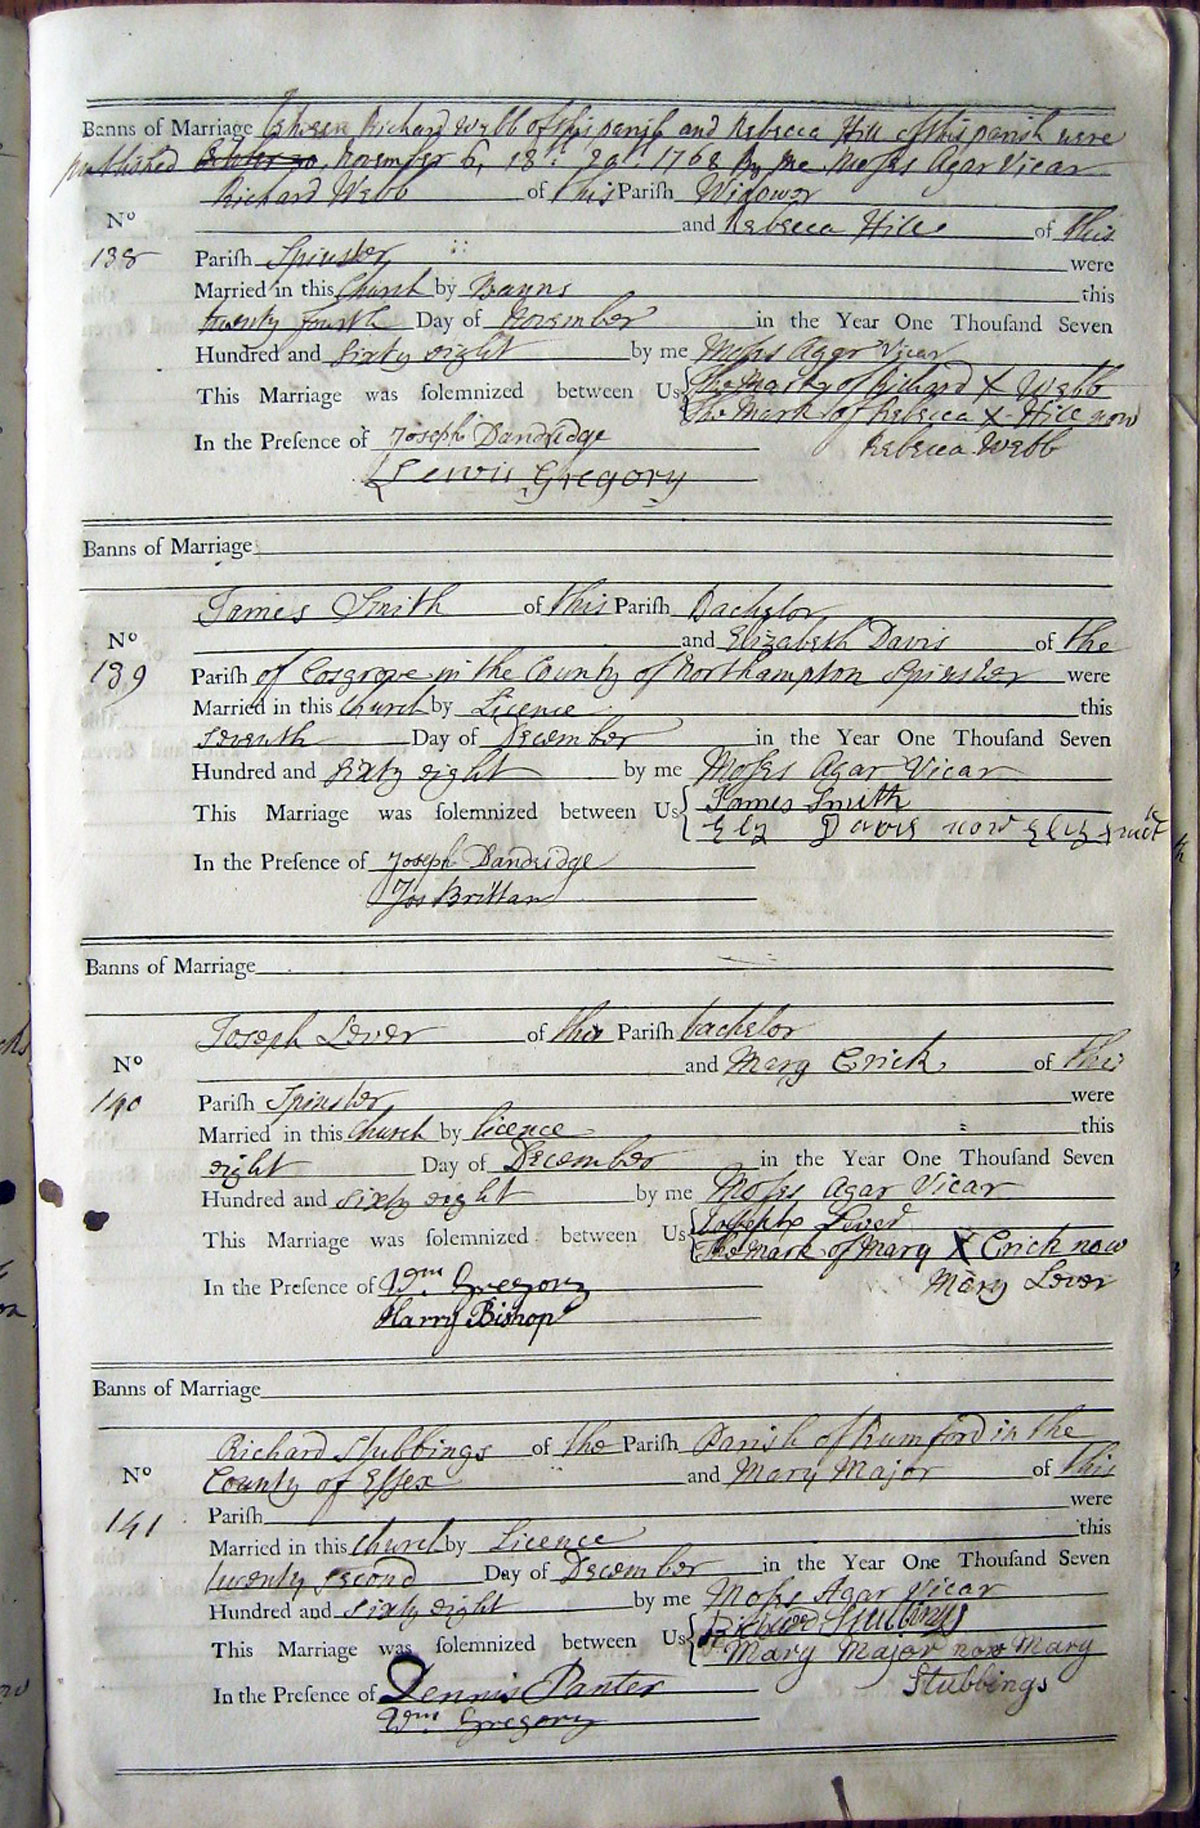 Banns of Marriage between Richard Webb of this parish and Rebecca Hill of this parish were
published November 6, 13: 20: 1768 By me Moses Agar Vicar
Richard Webb of this Parish Widower
No and Rebecca Hill of this
138 Parish Spinster were
Married in this Church by Banns this
twenty fourth Day of November in the Year One Thousand Seven
Hundred and sixty eight by me Moses Agar Vicar
This Marriage was solemnized between Us The Mark of Richard X Webb
The Mark of Rebecca X Hill now
In the Presence of Joseph Dandridge Rebecca Webb
Lewis Gregory
Banns of Marriage
James Smith of this Parish Bachelor
No and Elizabeth Davis of the
139 Parish of Cosgrove in the County of Northampton Spinster were
Married in this Church by Licence this
seventh Day of December in the Year One Thousand Seven
Hundred and sixty eight by me Moses Agar Vicar
This Marriage was solemnized between Us James Smith
Eliz Davis now Eliz
In the Presence of Joseph Dandridge
Jos Brittan
Banns of Marriage
Joseph Lever of this Parish bachelor
No and Mary Crick of this
140 Parish Spinster were
Married in this Church by licence this
eight Day of December in the Year One Thousand Seven
Hundred and sixty eight by me Moses Agar Vicar
This Marriage was solemnized between Us Joseph Lever
The Mark of Mary X Crick now
In the Presence of Wm Gregory Mary Lever
Harry Bishop
Banns of Marriage
Richard Stubbings of the Parish Parish of Rumford in the
No County of Essex and Mary Major of this
141 Parish were
Married in this Church by Licence this
twenty second Day of December in the Year One Thousand Seven
Hundred and sixty eight by me Moses Agar Vicar
This Marriage was solemnized between Us Richard Stubbings
Mary Major now Mary
In the Presence of Dennis Panter Stubbings
Wm Gregory